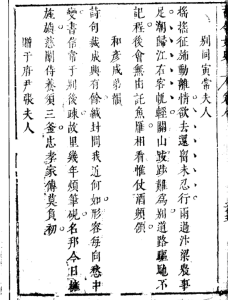 別同寅常夫人
搖搖征斾動離情欲去還留未忍行兩過汴梁農事
足潮歸江右客帆輕關山跋涉難為別道路驅馳不
記程後會無由託魚雁相看惟仗酒頻傾
和彥成弟韻
詩句裁成興有餘緘封問我近何如形容每向愁中
變書信常于別後疎故里幾年煩筆硯名邦今日擁
旌旟慈闈侍養須三釜忠孝家傳莫負初
贈于府尹張夫人